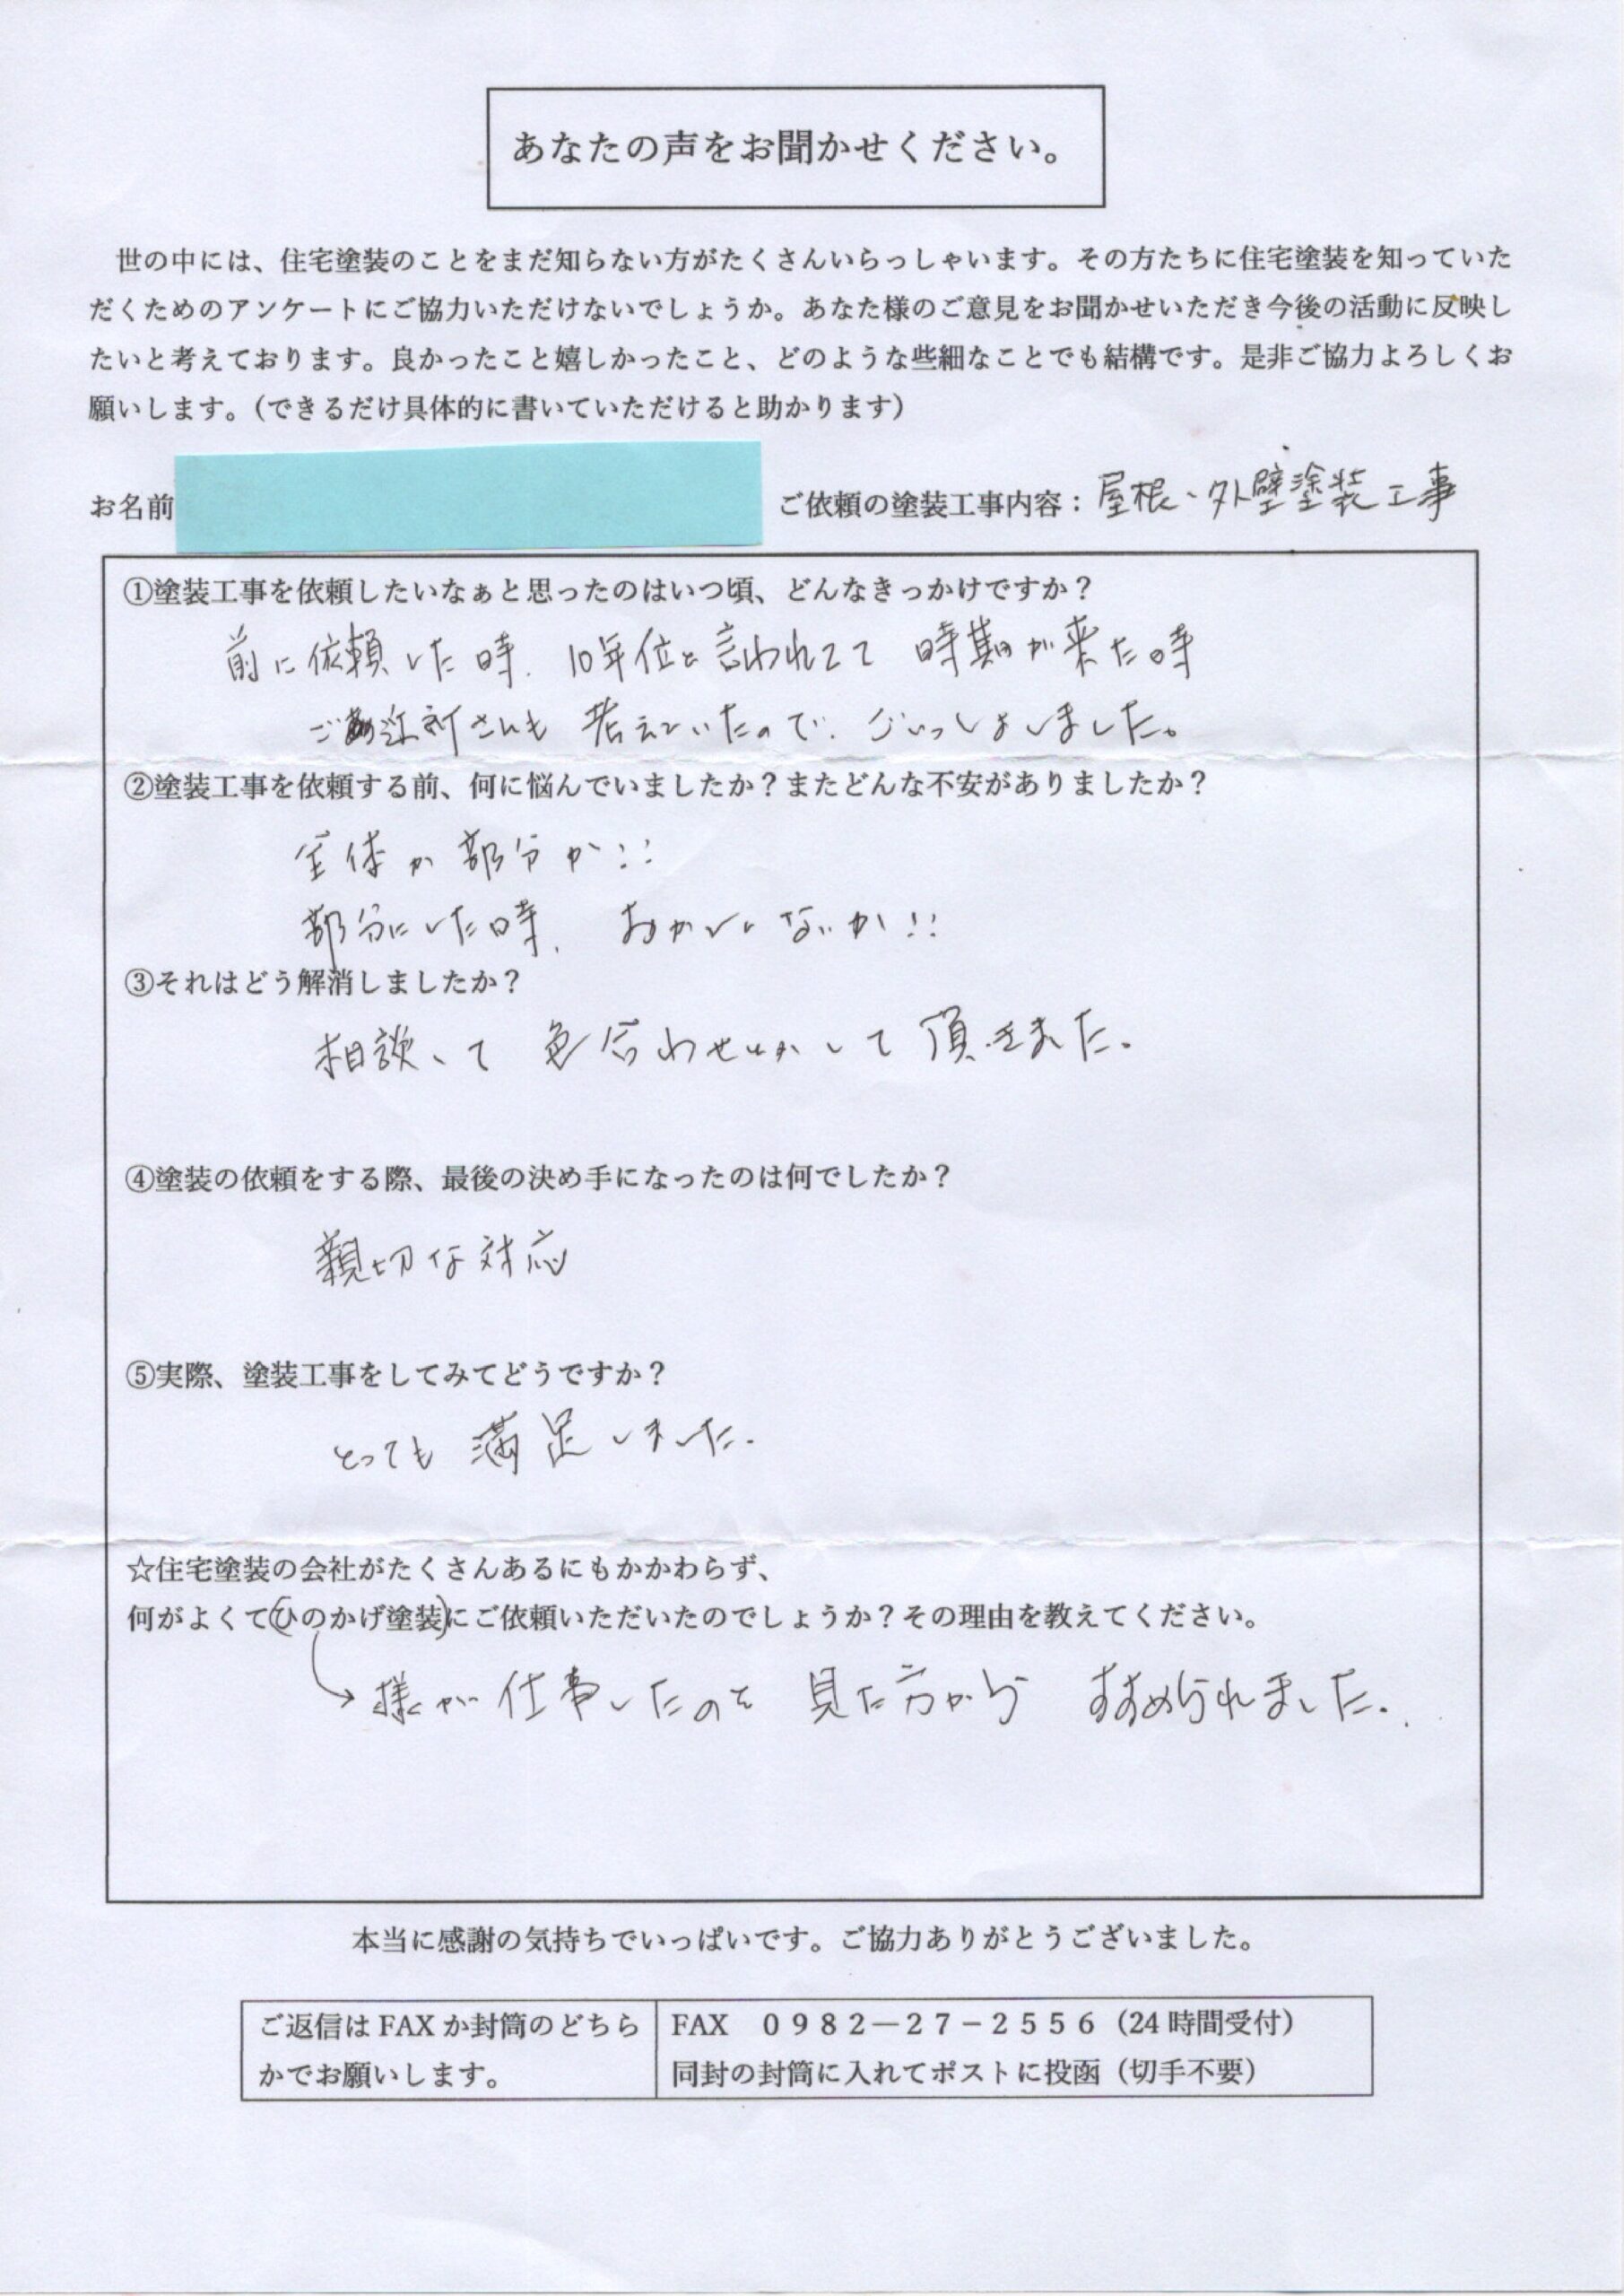 あなたの声をお聞かせください。
世の中には、住宅塗装のことをまだ知らない方がたくさんいらっしゃいます。その方たちに住宅塗装を知っていた
だくためのアンケートにご協力いただけないでしょうか。あなた様のご意見をお聞かせいただき今後の活動に反映し
たいと考えております。良かったこと嬉しかったこと、どのような些細なことでも結構です。是非ご協力よろしくお
願いします。(できるだけ具体的に書いていただけると助かります)
お名前 ご依頼の塗装工事内容：屋根、外壁塗装工事
①塗装工事を依頼したいなぁと思ったのはいつ頃、どんなきっかけですか？
前に依頼した時、10年位と言われてて 時期が来た時
ご近所さんも 考えていたので、ごいっしょしました。
②塗装工事を依頼する前、何に悩んでいましたか？またどんな不安がありましたか？
全体か 部分か!!
部分にした時、おかしくないか!!
③それはどう解消しましたか？
相談して 色合わせとかして 頂きました。
④塗装の依頼をする際、最後の決め手になったのは何でしたか？
親切な対応
⑤実際、塗装工事をしてみてどうですか？
とっても 満足しました。
☆住宅塗装の会社がたくさんあるにもかかわらず、
何がよくて(ひのかげ塗装)にご依頼いただいたのでしょうか？その理由を教えてください。
様が 仕事したのを 見た方から すすめられました。
本当に感謝の気持ちでいっぱいです。ご協力ありがとうございました。
ご返信は FAX か封筒のどちら
かでお願いします。
FAX ０９８２－２７－２５５６（24 時間受付）
同封の封筒に入れてポストに投函（切手不要）